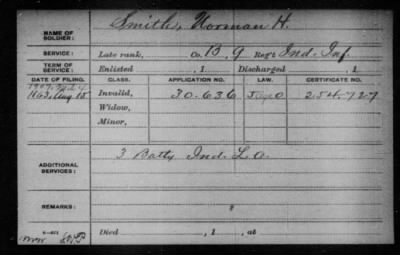 NAME OF SOLDIER: Smith, Norman H.
SERVICE: Late rank, Co. B, 9 Reg't Ind. Inf.
TERM OF SERVICE: Enlisted , 1 Discharged , 1
DATE OF FILING. CLASS. APPLICATION NO. LAW. CERTIFICATE NO.
1863, Aug 15 Invalid, 30.636 254.727
Widow,
Minor,
ADDITIONAL SERVICES: 3 Batty Ind. L. A.
REMARKS:
Died , 1 , at